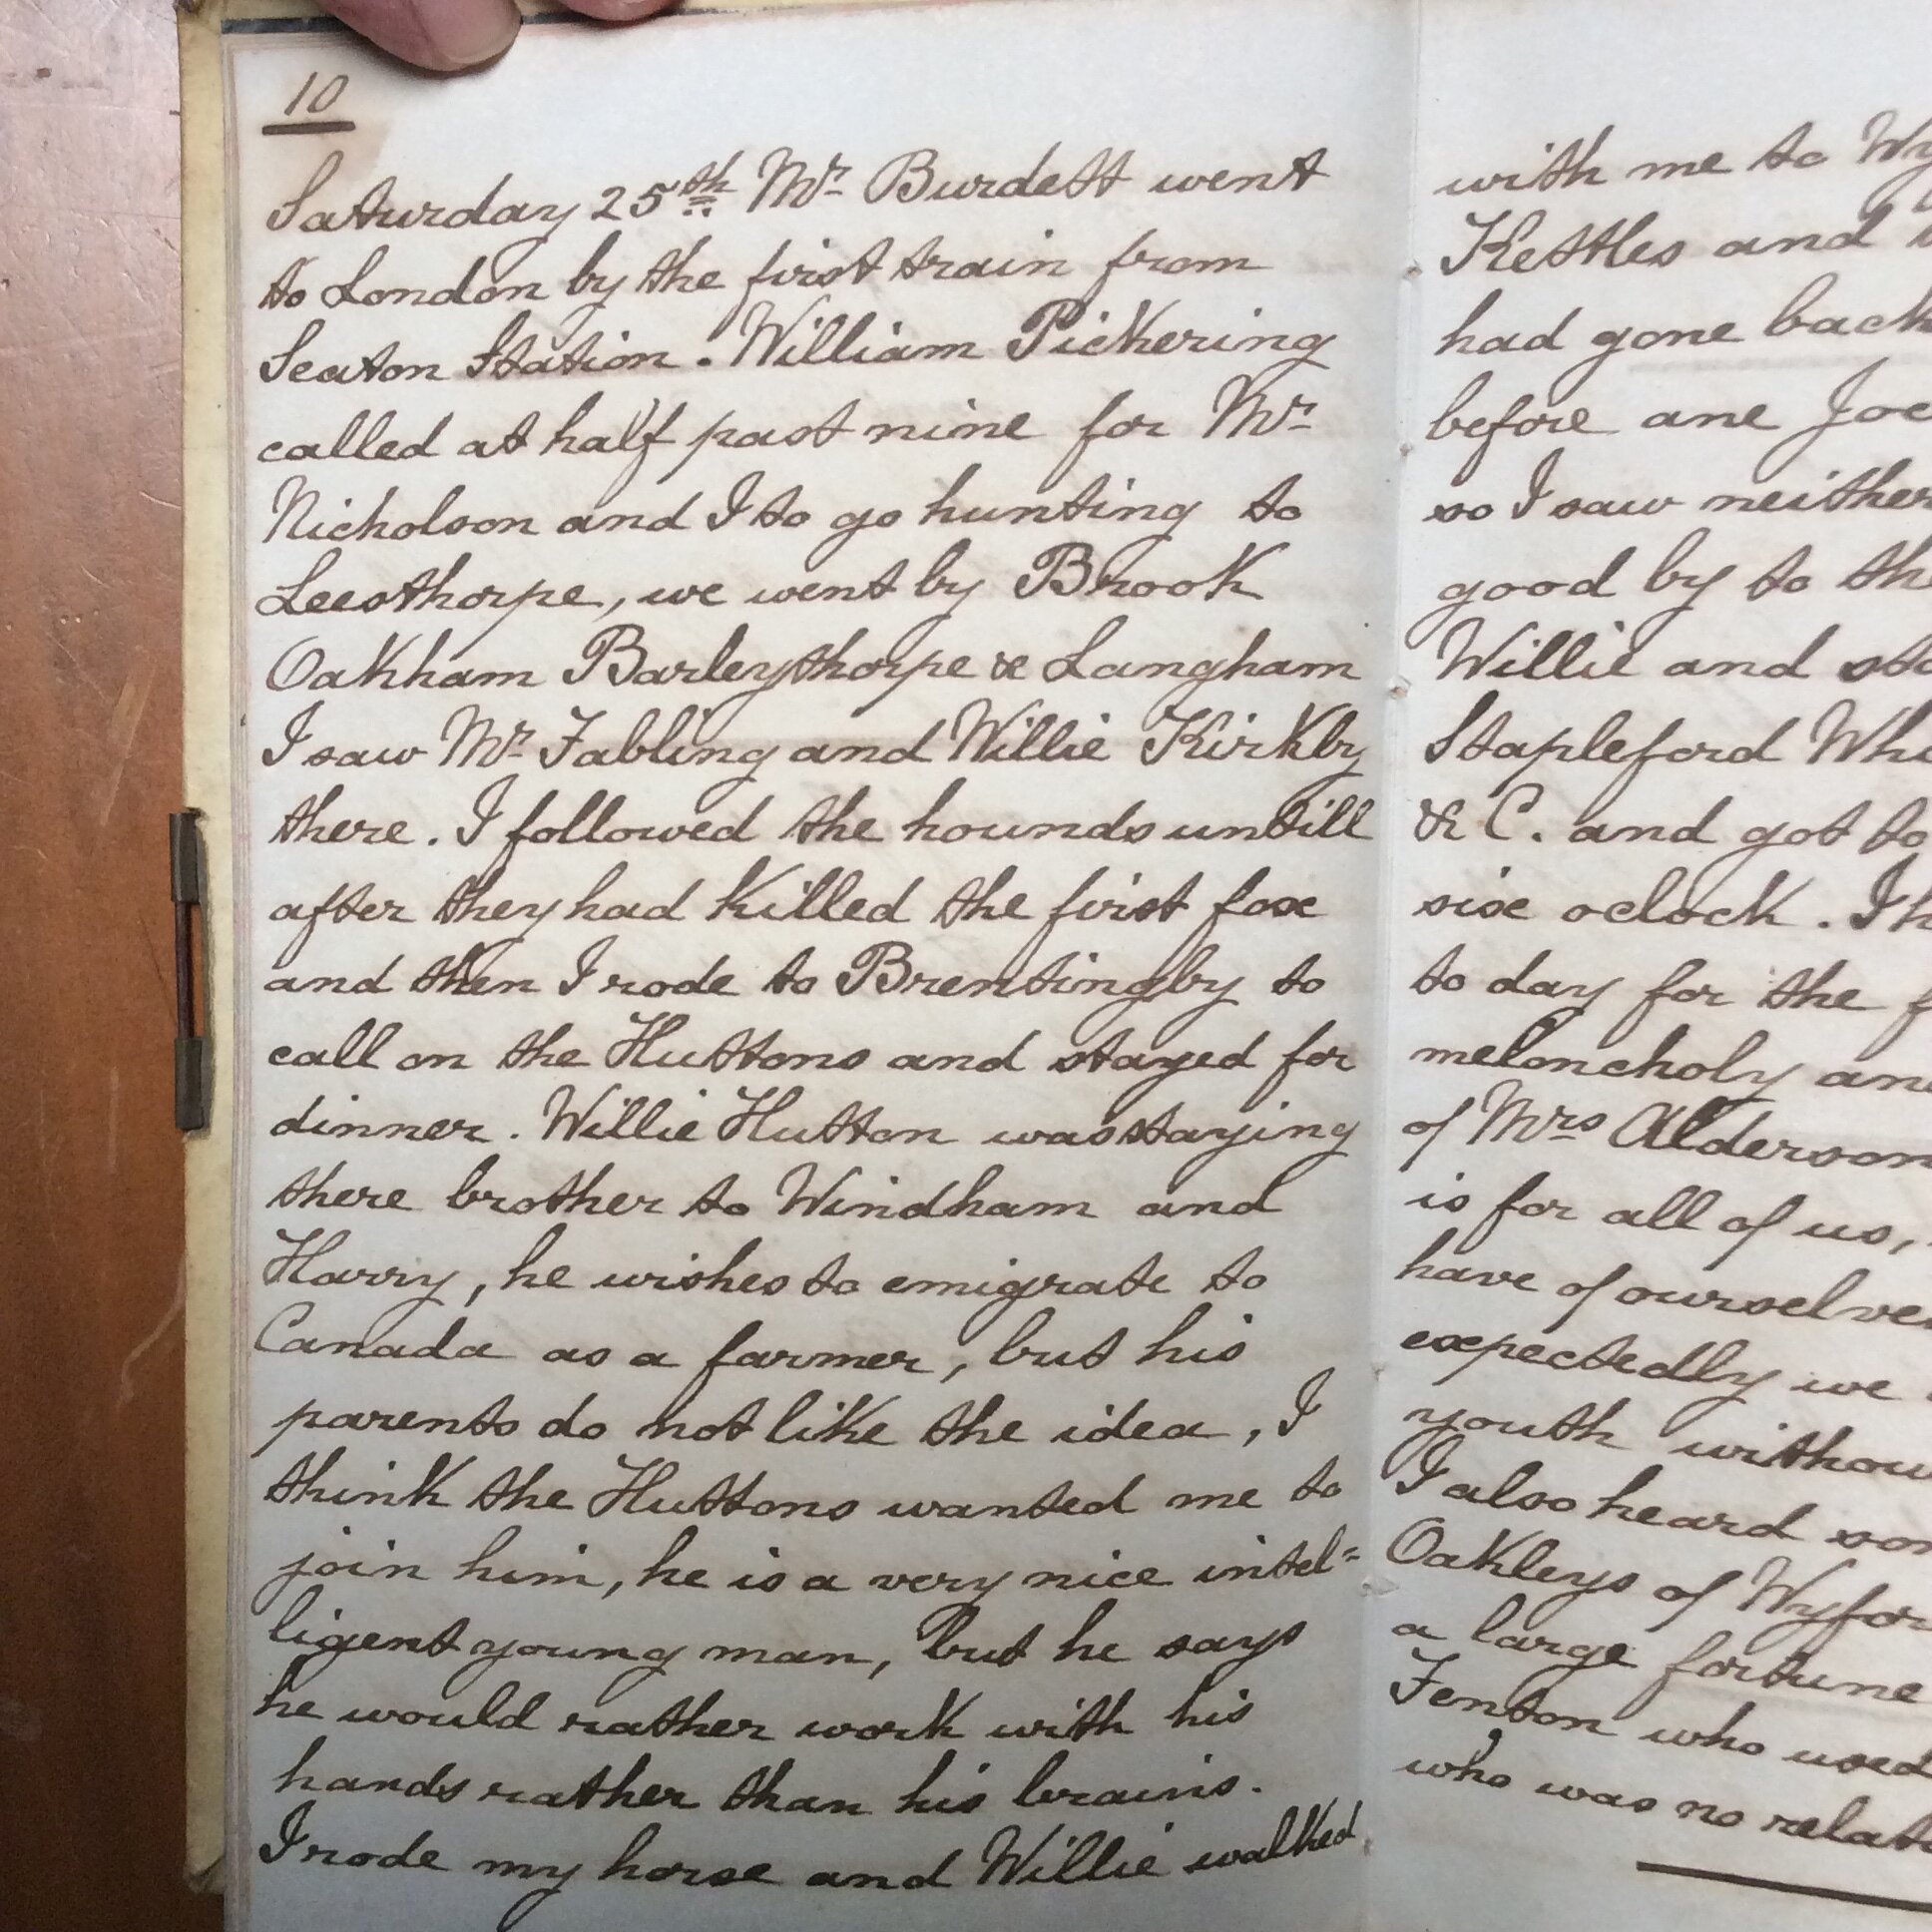 10
Saturday 25th Mr Burdett went
to London by the first train from
Seaton Station. William Pickering
called at half past nine for Mr
Nicholson and I to go hunting to
Leesthorpe, we went by Brook
Oakham Barleythorpe & Langham
I saw Mr Fabling and Willie Kirkby
there. I followed the hounds untill
after they had killed the first fox
and then I rode to Brentingby to
call on the Huttons and stayed for
dinner. Willie Hutton was staying
there brother to Windham and
Harry, he wishes to emigrate to
Canada as a farmer, but his
parents do not like the idea, I
think the Huttons wanted me to
join him, he is a very nice intel=
ligent young man, but he says
he would rather work with his
hands rather than his brains.
I rode my horse and Willie walked
with me to Wy
Kettles and
had gone back
before ane Joe
so I saw neither
good by to th
Willie and sta
Stapleford Whi
& C. and got to
six oclock. I h
to day for the f
meloncholy an
of Mrs Alderson
is for all of us,
have of ourselve
expectedly we
youth withou
I also heard som
Oakleys of Wyfor
a large fortune
Fenton who used
who was no relat